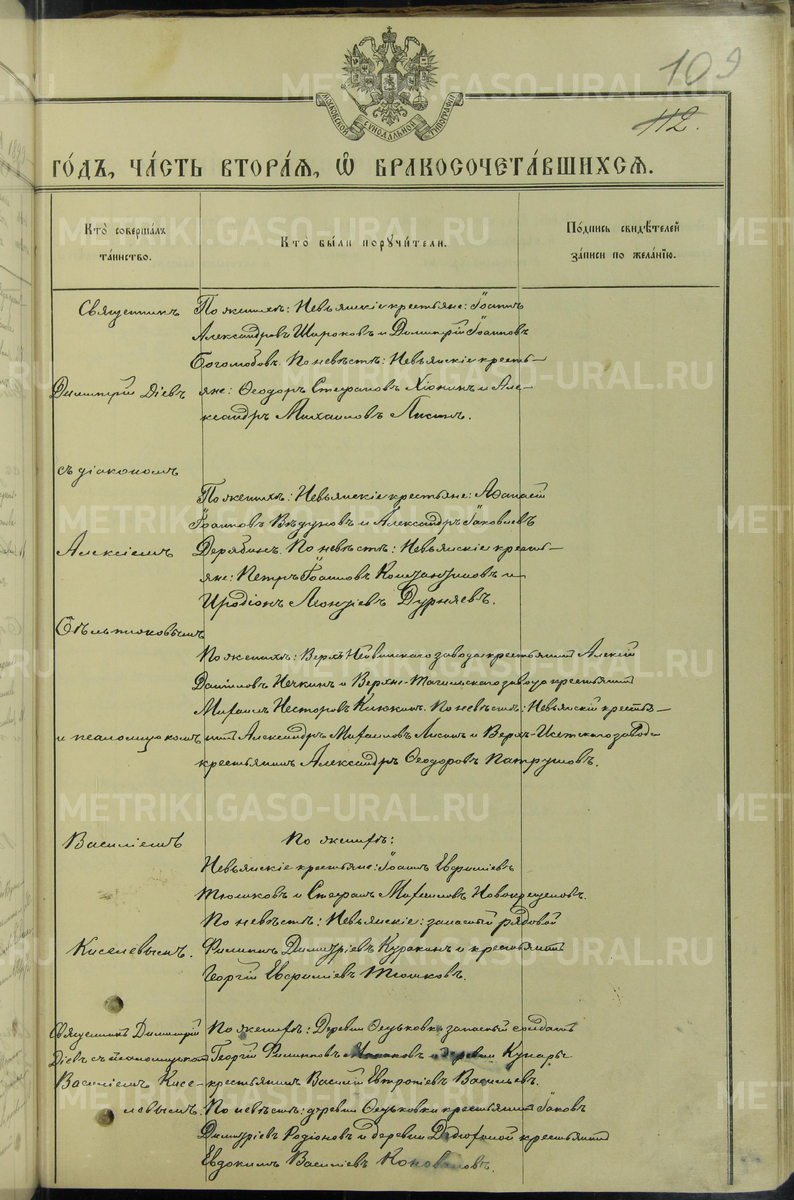 109
112.
МОСКОВСКОЙ СѴНОДАЛЬНОЙ ТИПОГРАФІИ
ГО́ДЪ, ЧА́СТЬ ВТОРА́Я, Ѡ҆ БРАКОСОЧЕТА́ВШИХСЯ.
Кто̀ соверша́лъ
та́инство.
Кто̀ бы́ли пору́чители.
По́дпись свидѣ́телей
за́писи по жела́нію.
Священникъ
Димитрій Діевъ
съ діакономъ
Алексіемъ
и псаломщикомъ
Василіемъ
Киселевымъ.
По женихѣ: Невьянскіе крестьяне: Іоаннъ
Александровъ Широковъ и Димитрій Іоанновъ
Богомоловъ. По невѣстѣ: Невьянскіе кресть-
яне: Ѳеодоръ Стефановъ и Але-
ксандръ Михаиловъ
По женихѣ: Невьянскіе крестьяне: Аѳанасій
Іоанновъ Вѣдуновъ и Александръ Іаковлевъ
Дерябинъ. По невѣстѣ: Невьянскіе кресть-
яне: Петръ Іоанновъ и
Иродіонъ Леонтіевъ Дурняевъ.
По женихѣ: Верхъ Нейвинскаго завода крестьянинъ Алексій
Даніиловъ Нечкинъ и Верхне-Тагильскаго завода крестьянинъ
Михаилъ Несторовъ Клюкинъ. По невѣстѣ: Невьянскій крестья-
нинъ Александръ Михаиловъ и Верхъ-Исетскаго завода
крестьянинъ Александръ Ѳеодоровъ Патрушовъ.
По женихѣ:
Невьянскіе крестьяне: Іоаннъ Евфиміевъ
Тюшковъ и Стефанъ Михаиловъ Новокрещеновъ.
По невѣстѣ: Невьянскіе: запасный рядовой
Филиппъ Димитріевъ Куракинъ и крестьянинъ
Георгій Евфиміевъ Тюшковъ.
Священникъ Димитрій
Діевъ съ псаломщикомъ
Василіемъ Кисе-
левымъ.
По женихѣ: Деревни Ѳедьковки запасный солдатъ
Георгій Филипповъ и деревни Кунары
крестьянинъ Василій Евтропіевъ Васильевъ.
По невѣстѣ: деревни Ѳедьковки крестьянинъ Іаковъ
Димитріевъ Родіоновъ и деревни крестьянинъ
Евдокимъ Василіевъ Коноваловъ.
METRIKI.GASO-URAL.RU